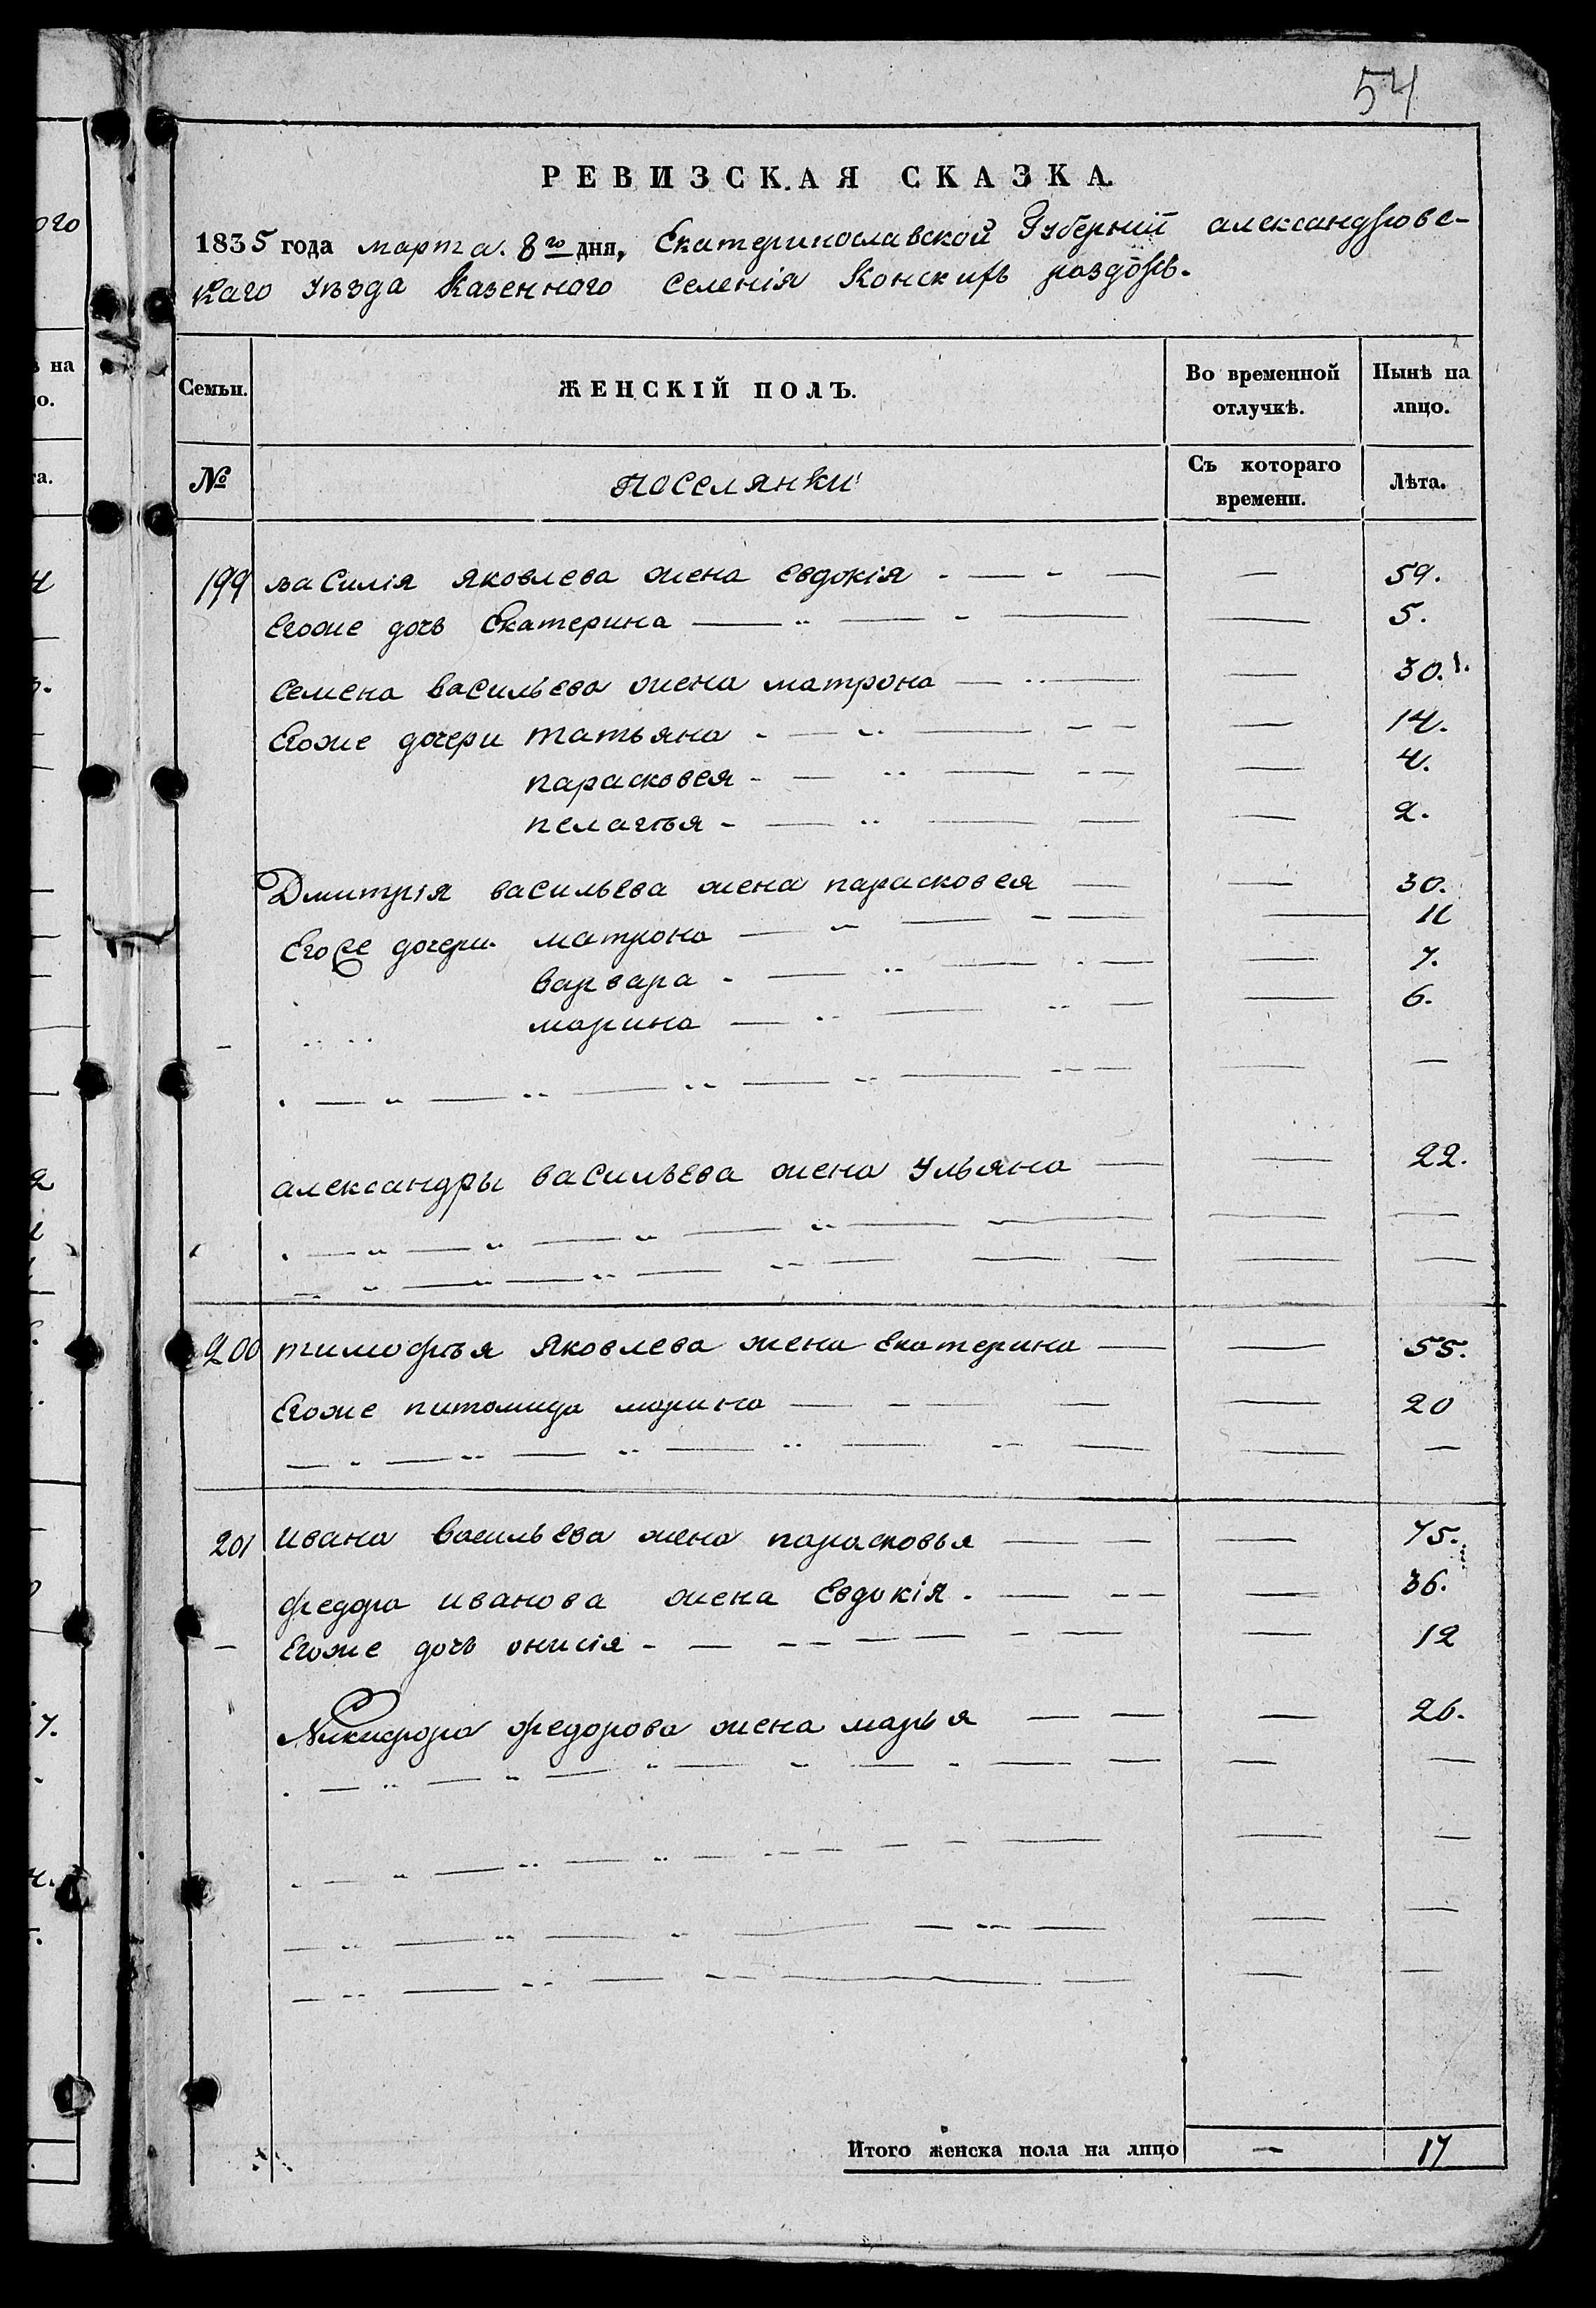 54
РЕВИЗСКАЯ СКАЗКА.
1835 года марта. 8го дня, Екатеринославской Губернїи александровс-
каго Уѣзда Казенного селенїя Конскихъ раздоръ.
Семьи. ЖЕНСКІЙ ПОЛЪ. Во временной отлучкѣ. Нынѣ на лицо.
№ поселянки Съ котораго времени. Лѣта.
199 василія яковлева жена евдокія — 59.
Егоже дочь Екатерина — 5.
Семена васильева жена матрона — 30.
Егоже дочери татьяна — 14.
парасковея — 4.
пелагѣя — 2.
Дмитрія васильева жена парасковея — 30.
Егоже дочери матрона — 11
варвара — 7.
марина — 6.
александры васильева жена Ульяна — 22.
200 тимофѣя яковлева жена екатерина — 55.
Егоже питомица марина — 20
201 ивана васильева жена парасковья — 75.
федора иванова жена Евдокія — 36.
Егоже дочь онисія — 12
Никифора федорова жена марья — 26.
Итого женска пола на лицо — 17